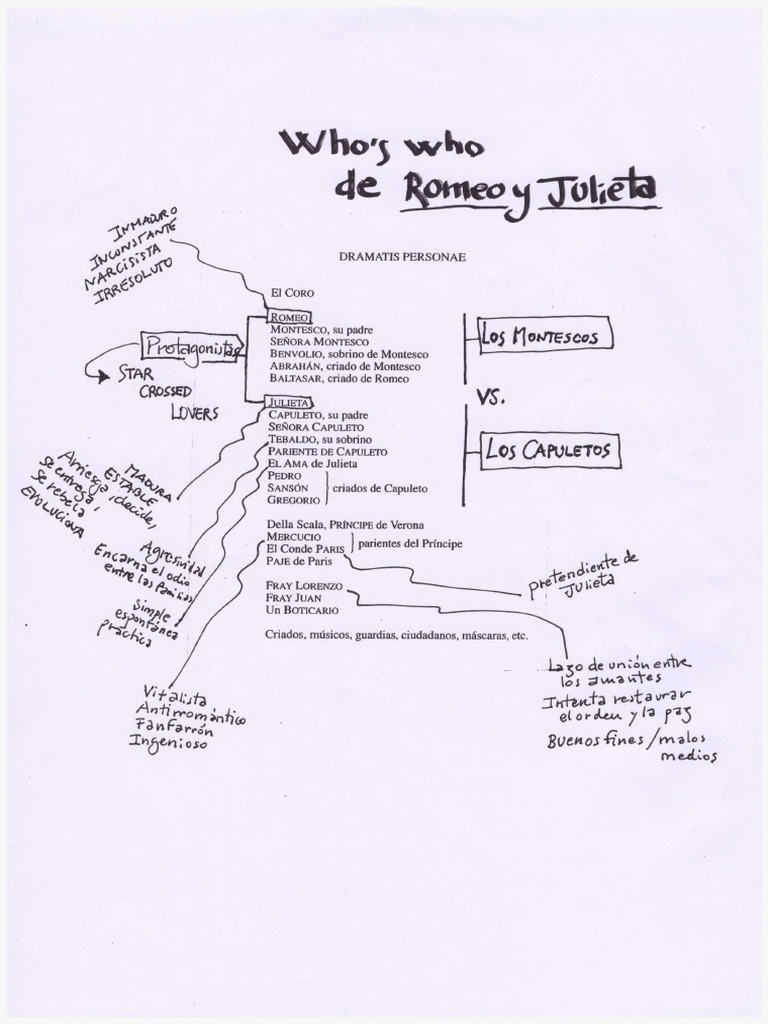 Who's who
de Romeo y Julieta
INMADURO
INCONSTANTE
NARCISISTA
IRRESOLUTO
DRAMATIS PERSONAE
EL CORO
ROMEO
MONTESCO, su padre
SEÑORA MONTESCO
BENVOLIO, sobrino de Montesco
ABRAHÁN, criado de Montesco
BALTASAR, criado de Romeo
LOS MONTESCOS
Protagonistas
STAR
CROSSED
LOVERS
VS.
JULIETA
CAPULETO, su padre
SEÑORA CAPULETO
TEBALDO, su sobrino
PARIENTE DE CAPULETO
EL AMA de Julieta
PEDRO
SANSÓN
GREGORIO
criados de Capuleto
LOS CAPULETOS
MADURA
ESTABLE
Arriesga, decide,
se entrega,
se rebela
EVOLUCIONA
Agresividad
Encarna el odio
entre las familias
Simple
espontánea
práctica
Della Scala, PRÍNCIPE de Verona
MERCUCIO
El Conde PARIS
parientes del Príncipe
PAJE de Paris
FRAY LORENZO
FRAY JUAN
Un BOTICARIO
Criados, músicos, guardias, ciudadanos, máscaras, etc.
pretendiente de
Julieta
Lazo de unión entre
los amantes
Intenta restaurar
el orden y la paz
Buenos fines / malos
medios
Vitalista
Antirromántico
Fanfarrón
Ingenioso